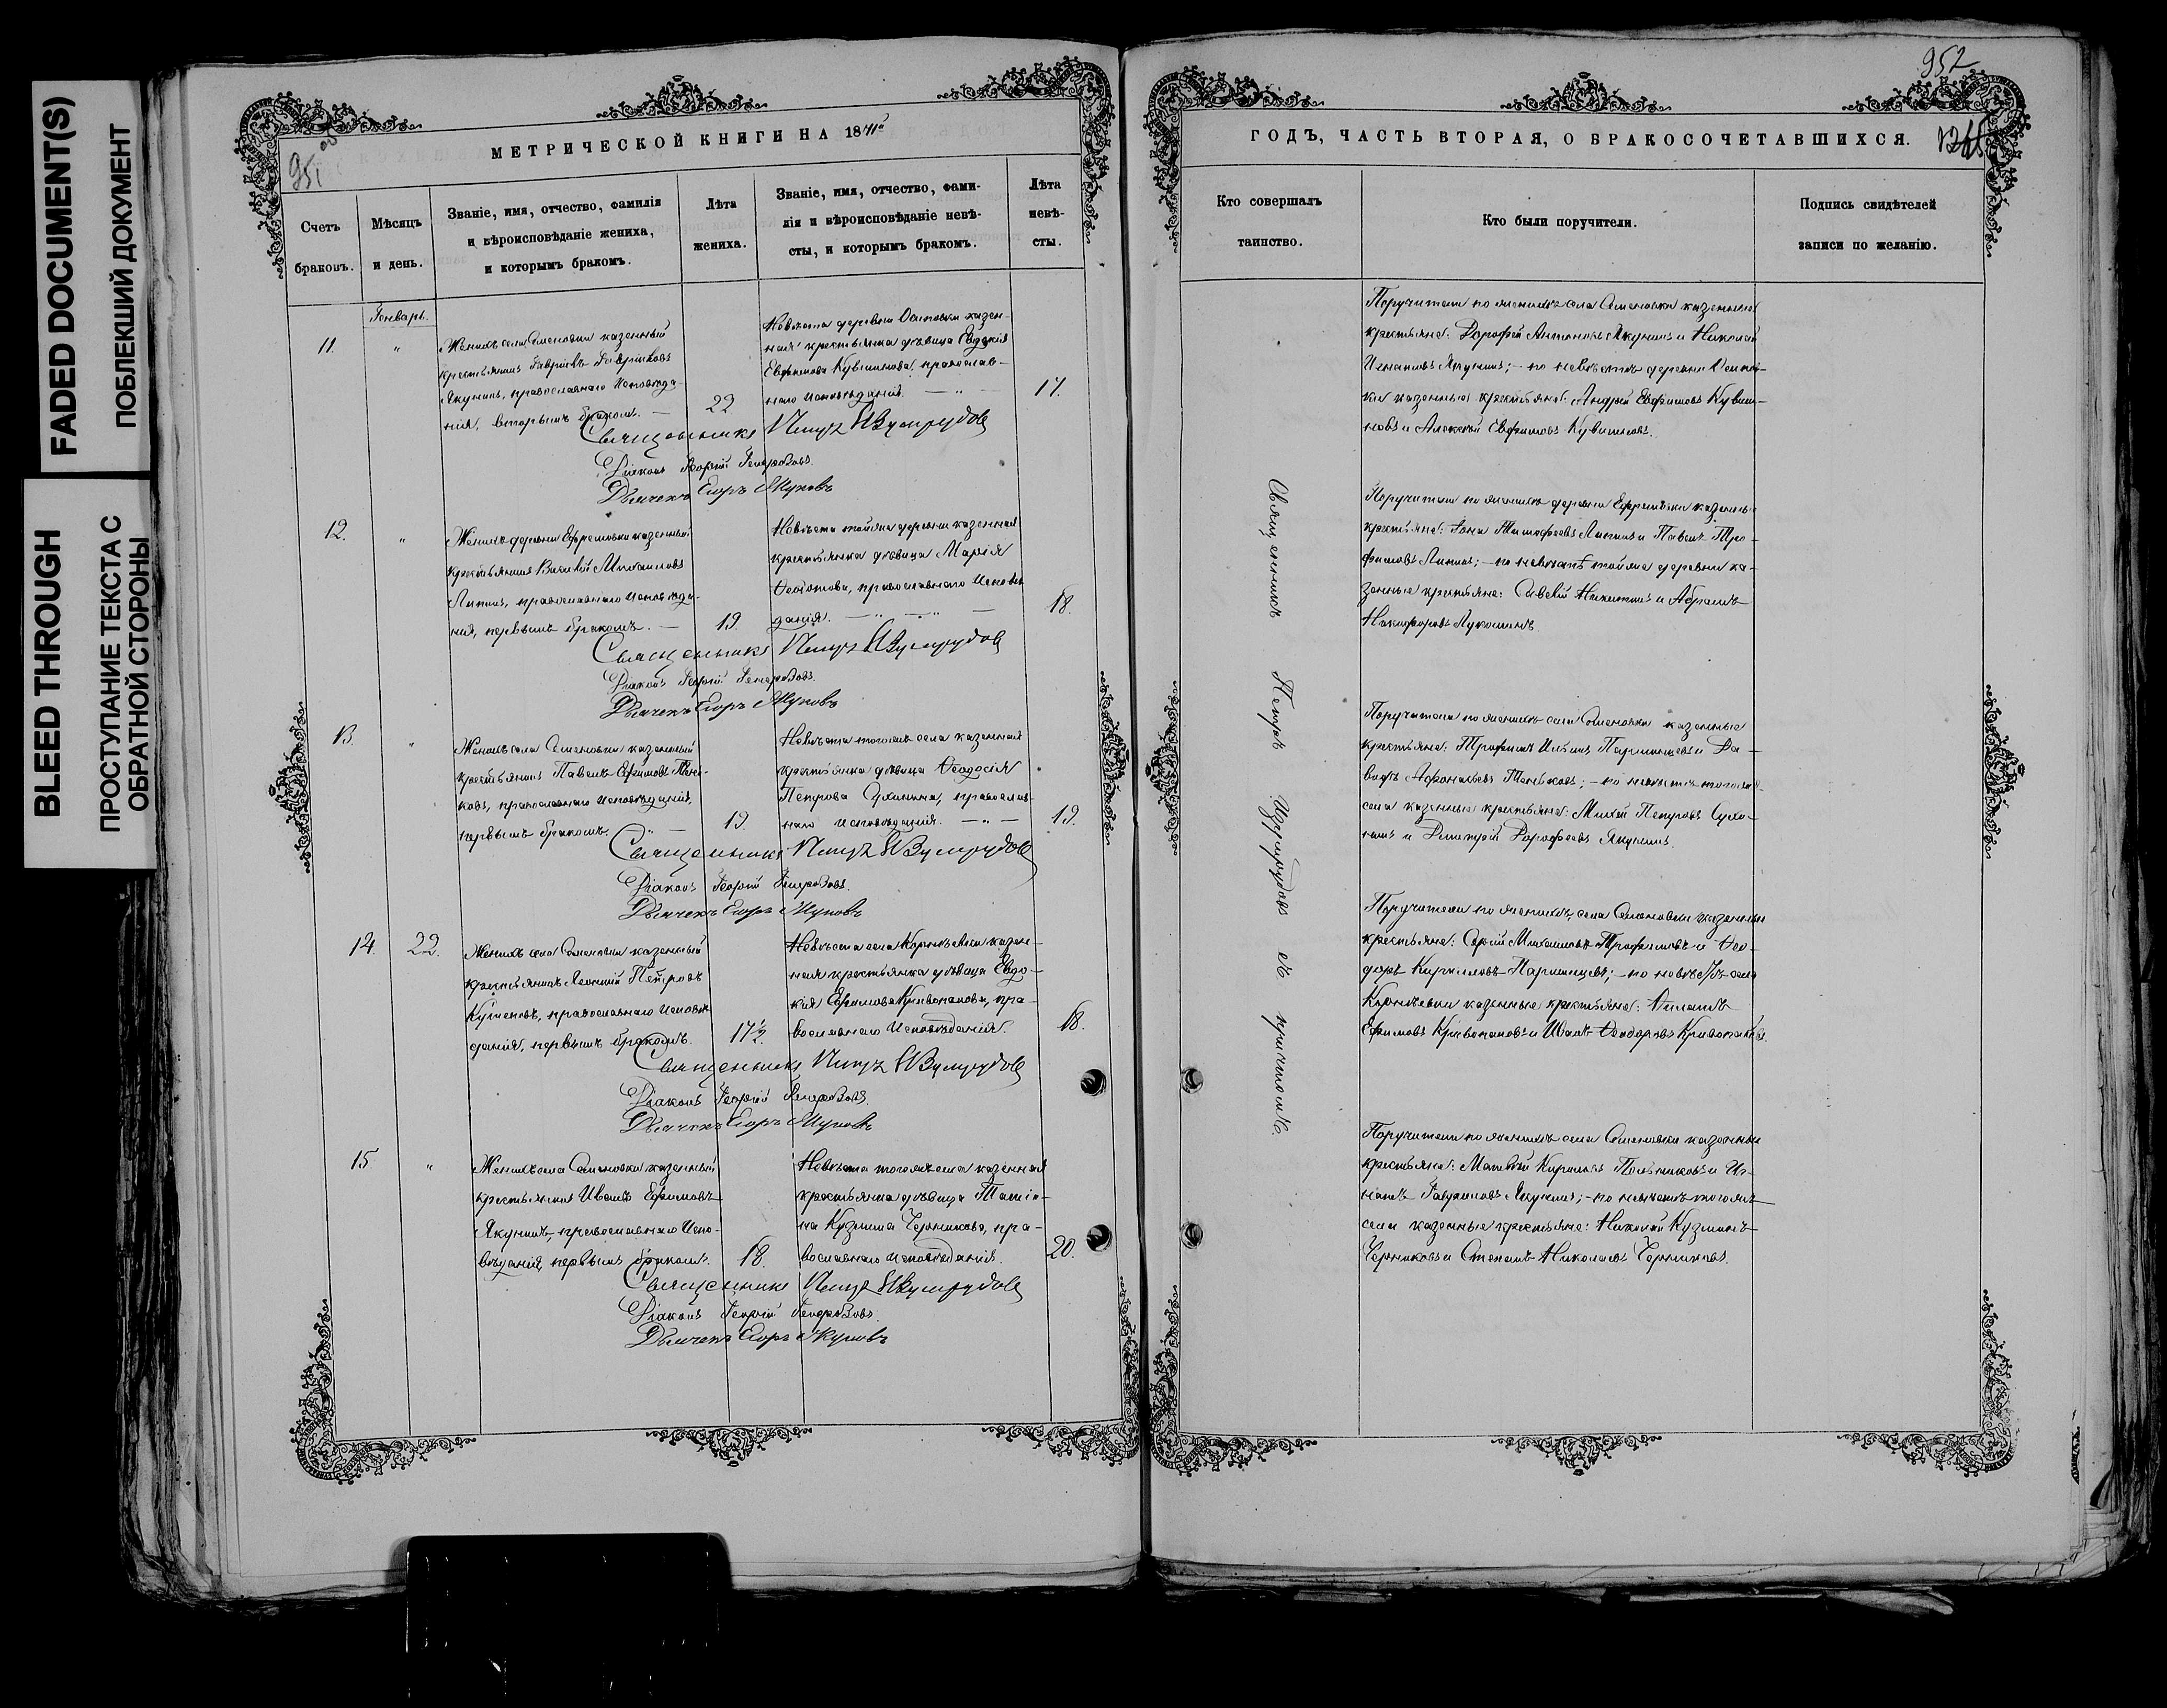 FADED DOCUMENT(S)
ПОБЛЕКШИЙ ДОКУМЕНТ
BLEED THROUGH
ПРОСТУПАНИЕ ТЕКСТА С
ОБРАТНОЙ СТОРОНЫ
951
МЕТРИЧЕСКОЙ КНИГИ НА 1871й
Счетъ
браковъ.
Мѣсяцъ
и день.
Званіе, имя, отчество, фамилія
и вѣроисповѣданіе жениха,
и которымъ бракомъ.
Лѣта
жениха.
Званіе, имя, отчество, фами-
лія и вѣроисповѣданіе невѣ-
сты, и которымъ бракомъ.
Лѣта
невѣ-
сты.
Генварь.
11.
"
Женихъ села Семеновки казенный
крестьянинъ Гавриилъ Гавриловъ
Якунинъ, православнаго исповѣда-
нія, вторымъ бракомъ.
22.
Невѣста деревни Осиновки казен-
ная крестьянка дѣвица Евдокія
Евфимова Кувшинова, православ-
наго исповѣданія.
17.
Священникъ Петръ Изумрудовъ
Діаконъ Георгій
Дьячекъ Егоръ Жуковъ
12.
"
Женихъ деревни Ефремовки казенный
крестьянинъ Василій Михаиловъ
Липинъ, православнаго исповѣда-
нія, первымъ бракомъ.
19.
Невѣста тойже деревни казенная
крестьянка дѣвица Марія
православнаго исповѣ
данія.
18.
Священникъ Петръ Изумрудовъ
Діаконъ Георгій
Дьячекъ Егоръ Жуковъ
13.
"
Женихъ села Семеновки казенный
крестьянинъ Павелъ Ефимовъ
ковъ, православнаго исповѣданія,
первымъ бракомъ.
19.
Невѣста тогоже села казенная
крестьянка дѣвица Ѳеодосія
Петрова Сухинина, православ-
наго исповѣданія.
19.
Священникъ Петръ Изумрудовъ
Діаконъ Георгій
Дьячекъ Егоръ Жуковъ
14.
22.
Женихъ села Семеновки казенный
крестьянинъ Леонтій Петровъ
православнаго исповѣ
данія, первымъ бракомъ.
17½.
Невѣста села Корнѣевки казен-
ная крестьянка дѣвица Евдо-
кія Ефимова Кривоножова, пра-
вославнаго исповѣданія.
18.
Священникъ Петръ Изумрудовъ
Діаконъ Георгій
Дьячекъ Егоръ Жуковъ
15
"
Женихъ села Семеновки казенный
крестьянинъ Иванъ Ефимовъ
Якунинъ, православнаго испо-
вѣданія, первымъ бракомъ.
18.
Невѣста тогоже села казенная
крестьянка дѣвица Татія-
на Кузмина Черникова, пра-
вославнаго исповѣданія.
20.
Священникъ Петръ Изумрудовъ
Діаконъ Георгій
Дьячекъ Егоръ Жуковъ
952
ГОДЪ, ЧАСТЬ ВТОРАЯ, О БРАКОСОЧЕТАВШИХСЯ.
Кто совершалъ
таинство.
Кто были поручители.
Подпись свидѣтелей
записи по желанію.
Священникъ Петръ Изумрудовъ съ причтомъ.
Поручители по женихѣ села Семеновки казенные
крестьяне: Дорофей Антоновъ Якунинъ и Николай
Игнатовъ Якунинъ; – по невѣстѣ деревни Осинов-
ки казенные крестьяне: Андрей Евфимовъ Кувши-
новъ и Алексѣй Евфимовъ Кувшиновъ.
Поручители по женихѣ деревни Ефремовки казенные
крестьяне: Іона Тимофеевъ Липинъ и Павелъ Тро-
фимовъ Липинъ; – по невѣстѣ тойже деревни ка-
зенные крестьяне: Савелій Никитинъ и Абрамъ
Никифоровъ Лукошинъ.
Поручители по женихѣ села Семеновки казенные
крестьяне: Трофимъ Ильинъ Паршинцевъ и Да-
видъ Афонасьевъ по невѣстѣ тогоже
села казенные крестьяне: Михей Петровъ Сухи-
нинъ и Димитрій Дорофеевъ Якунинъ.
Поручители по женихѣ села Семеновки казенные
крестьяне: Сергій Михаиловъ Трофимовъ и Ѳео-
доръ Кирилловъ Паршинцевъ; – по невѣстѣ села
Корнѣевки казенные крестьяне:
Ефимовъ Кривоножовъ и Иванъ Ѳеодоровъ Кривоножовъ.
Поручители по женихѣ села Семеновки казенные
крестьяне: Матвѣй Кириловъ и Иг-
натъ Гавриловъ Якунинъ; – по невѣстѣ тогоже
села казенные крестьяне: Николай Кузминъ
Черниковъ и Степанъ Николаевъ Черниковъ.